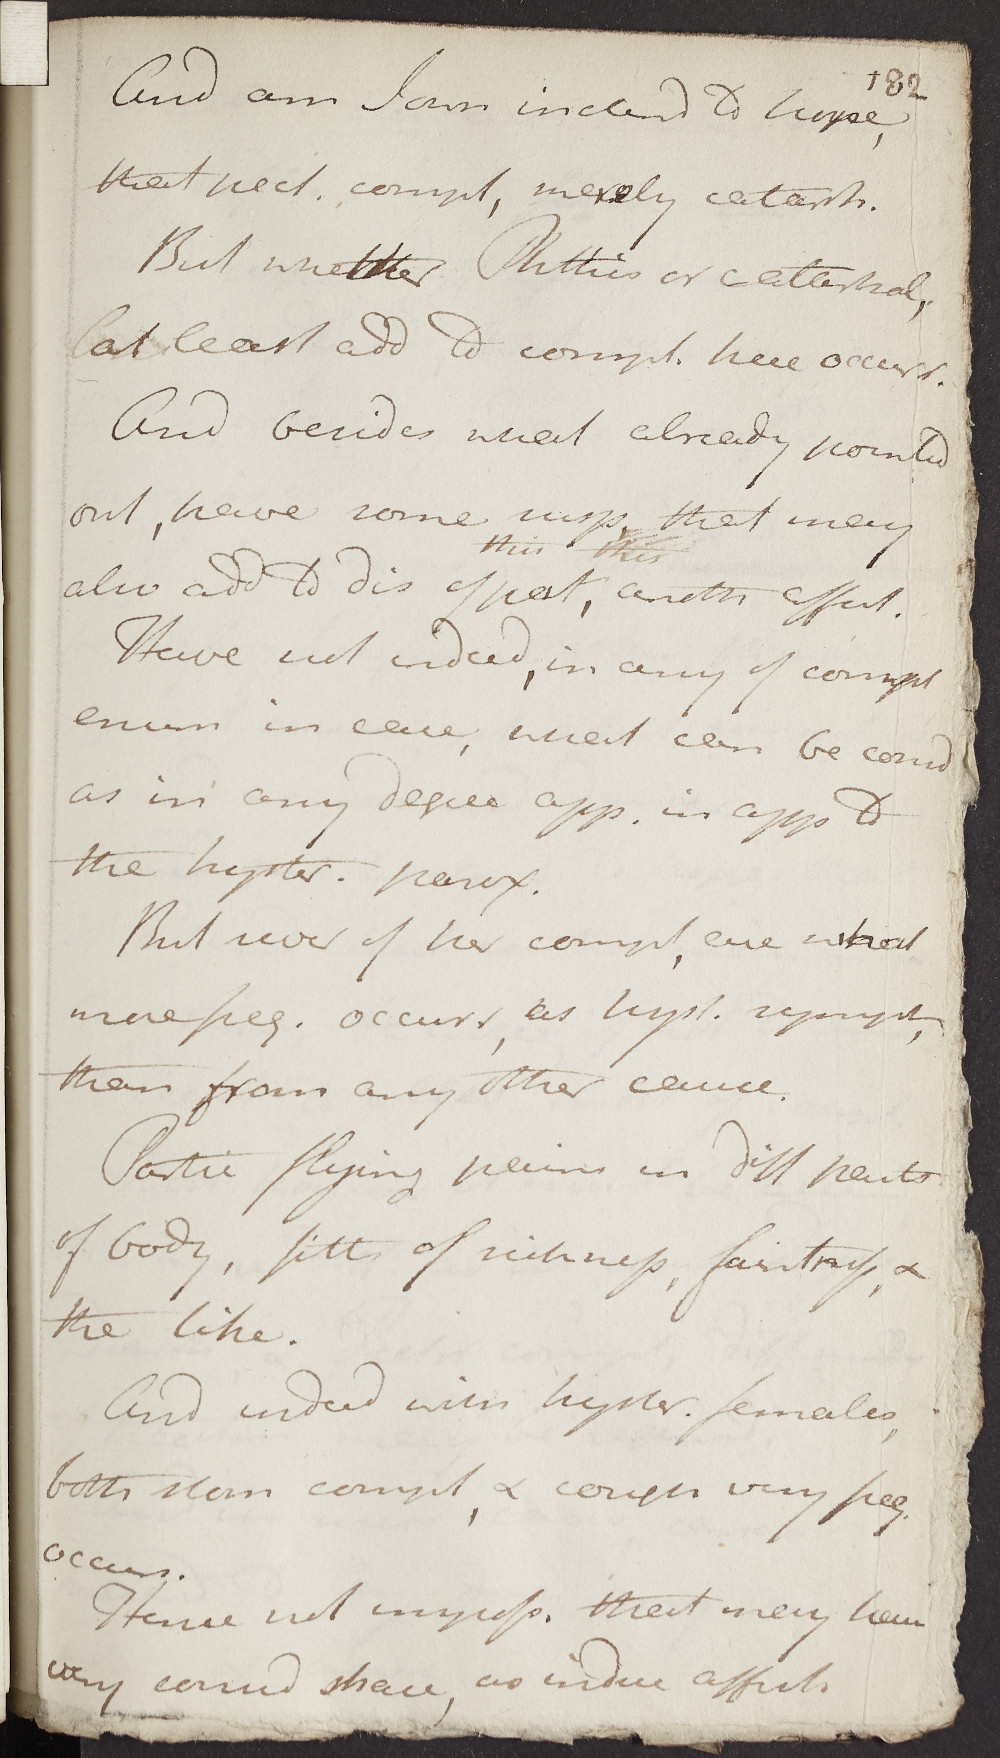 182
And am I own inclend to hope,
that pect. compt, merely catarrh.
But whether Phthis or catarrhal,
at least add to compt. here occurr.
And besides what already pointed
out, have some susp. that may
this this
also add to dis of pat, anoth affect.
Have not indeed, in any of compt
enum in case, what can be consid
as in any degree app. in apps to
the hyster. parox.
But sever of her compt, are what
more freq. occurr, as hyst. sympt,
than from any other cause.
Partic flying pains in diff parts
of body, fitts of sickness, faintness, &
the like.
And indeed with hyster. females,
both stom compt, & cough very freq.
occurs.
Hence not imposs. that may have
very consid share, as induc affect